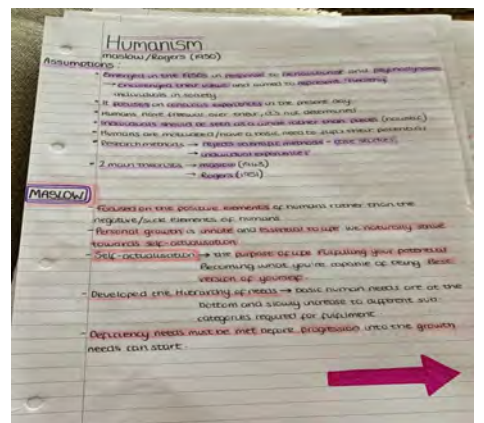 Humanism
maslow/Rogers (1950)
Assumptions:
- Emerged in the 1950s in response to behaviourist and psychodynamic
→ challenged their values and aimed to represent 'healthy'
individuals in society
- It focuses on conscious experiences in the present day.
- Humans have freewill over their, it's not determined
- Individuals should be seen as a whole rather than pieces (holistic)
- Humans are motivated/have a basic need to fulfil their potential
- Research methods → rejects scientific methods - case studies,
→ individual experiences
- 2 main theories → maslow (1943)
→ Rogers (1951)
MASLOW
- Focused on the positive elements of humans rather than the
negative/sick elements of humans
- Personal growth is innate and essential to life we naturally strive
towards self-actualisation
- Self-actualisation → the purpose of life. Fulfilling your potential
Becoming what you're capable of being. Best
version of yourself.
- Developed the Hierarchy of needs → basic human needs are at the
bottom and slowly increase to different sub
categories required for fulfilment
- Deficiency needs must be met before progression into the growth
needs can start.